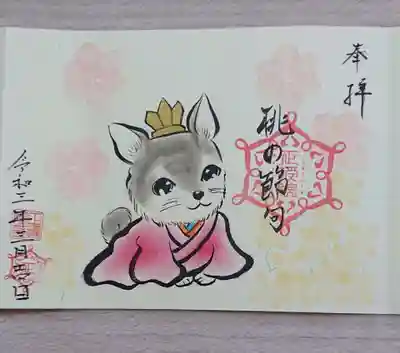 奉拝
桃の節句
令和三年三月四日